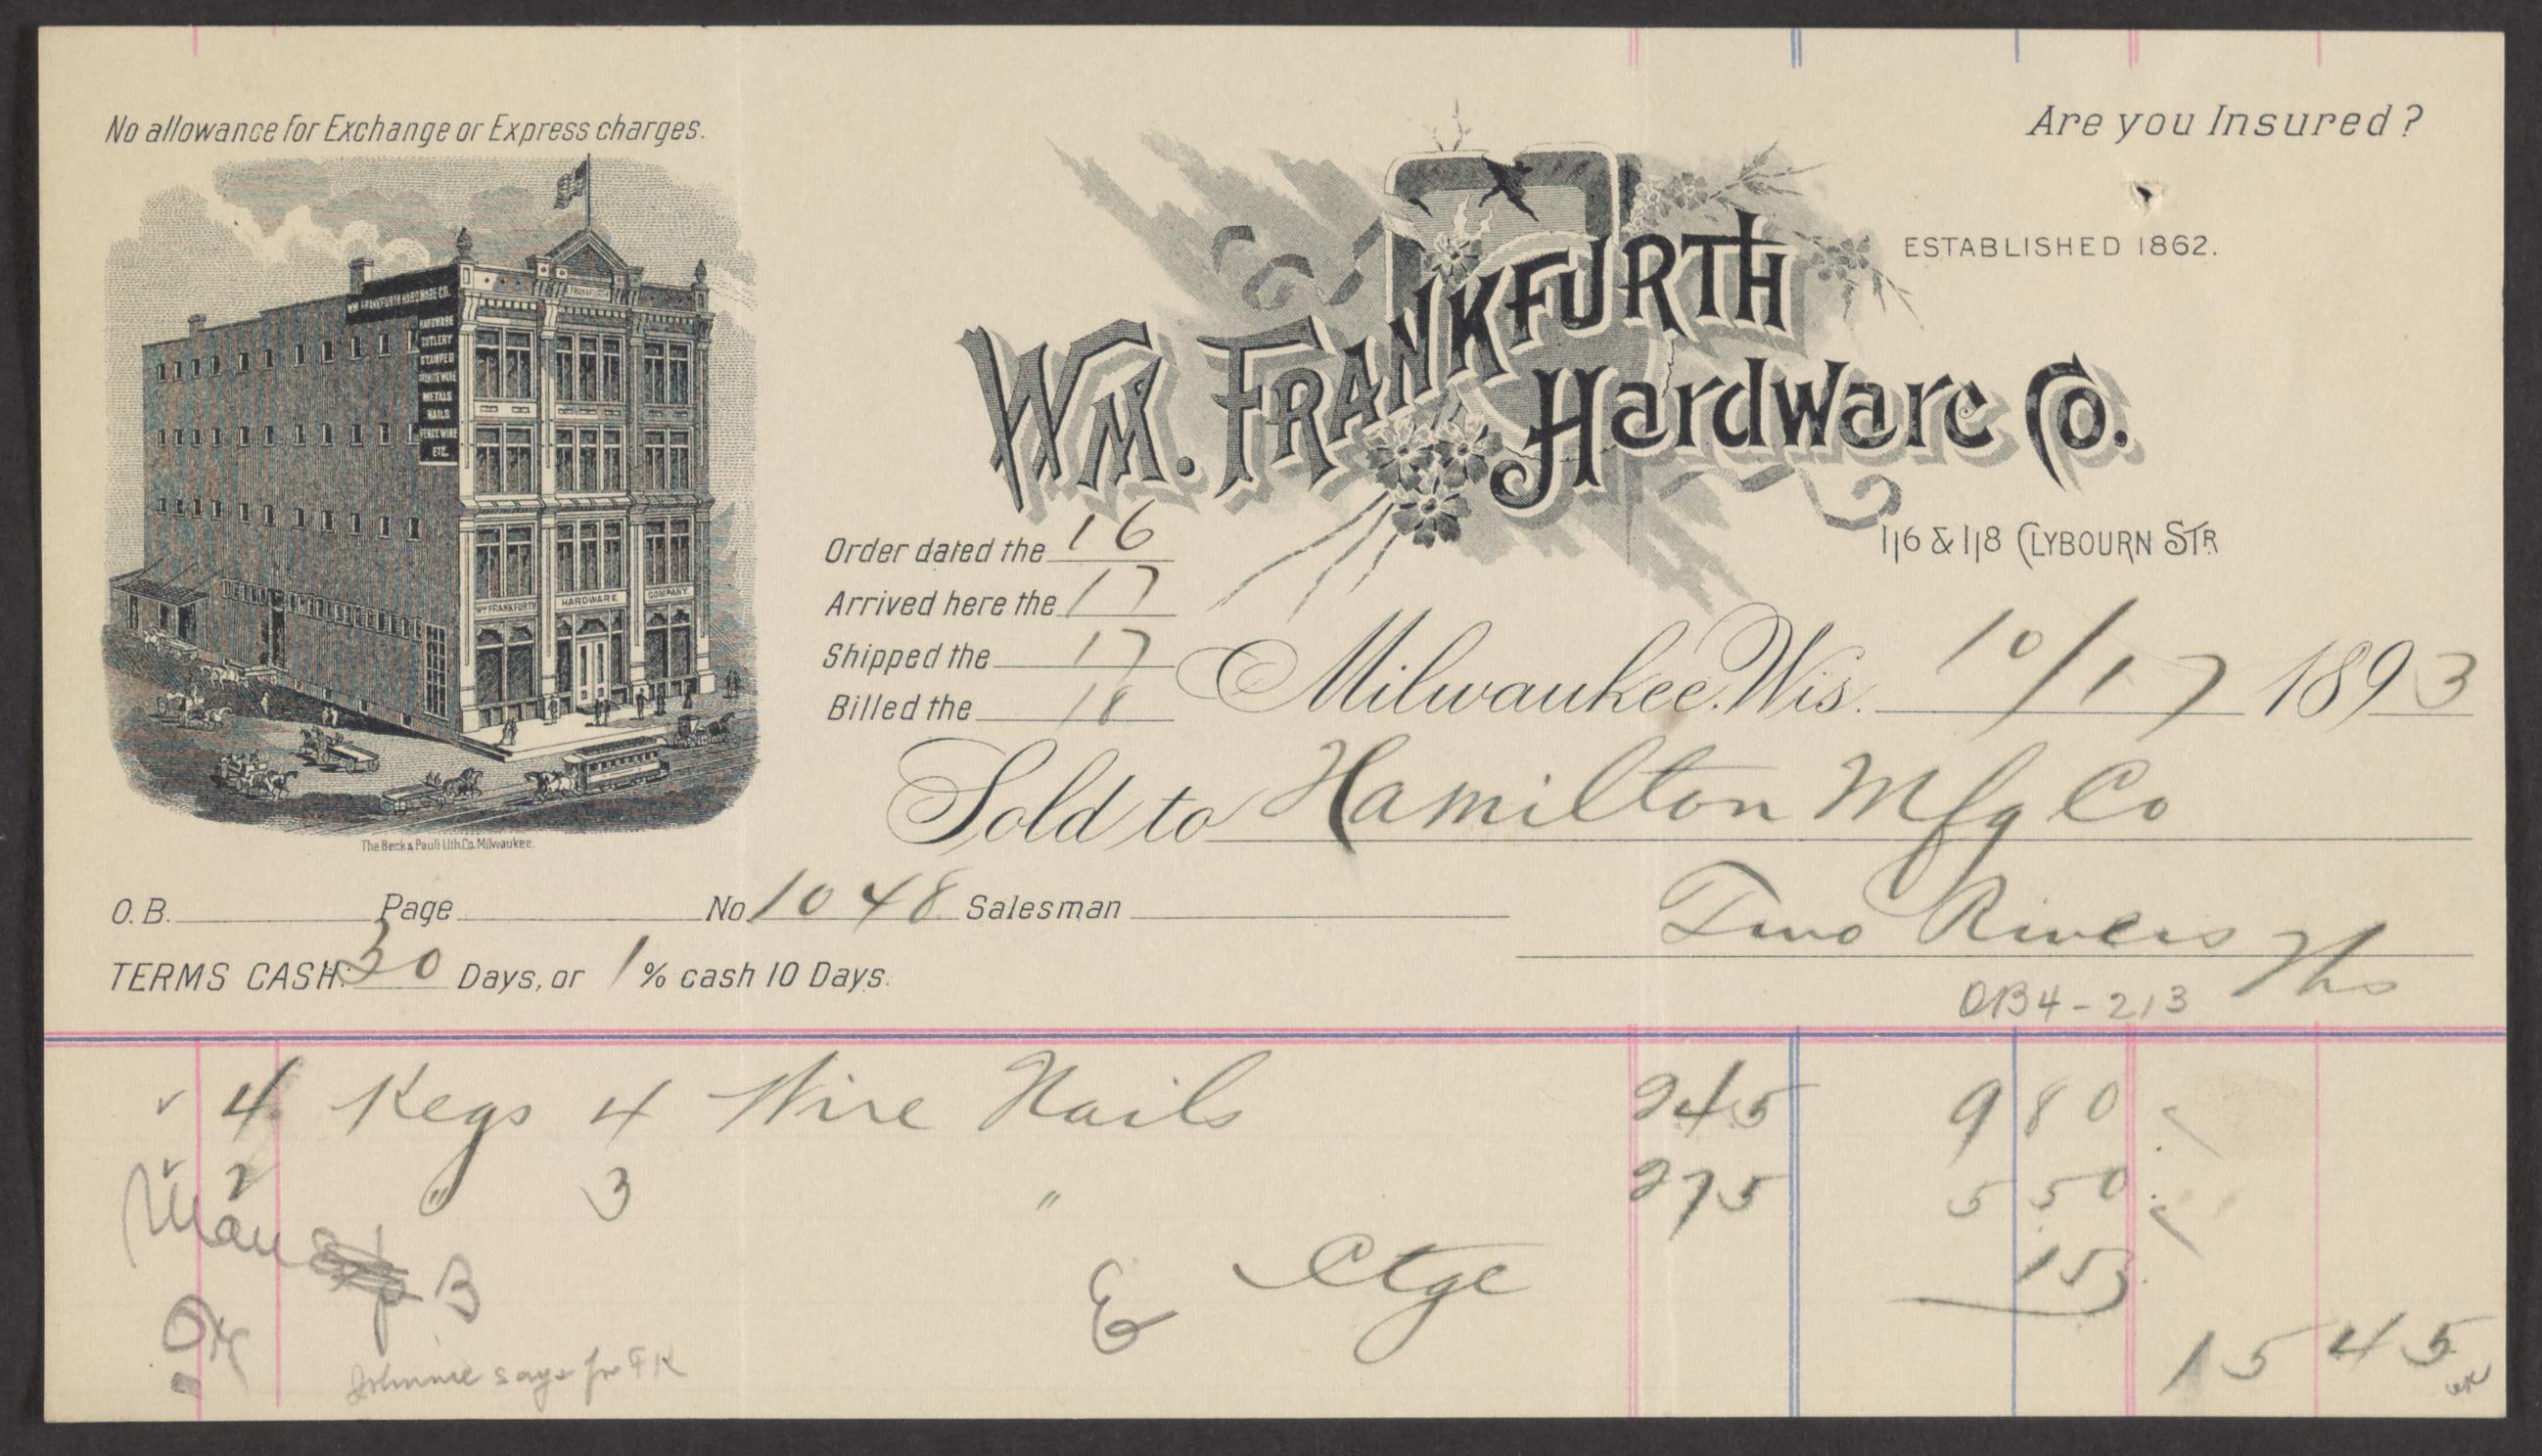 No allowance for Exchange or Express charges.
Are you Insured?
ESTABLISHED 1862.
WM. FRANKFURTH
Hardware Co.
116 & 118 CLYBOURN STR
WM FRANKFURTH HARDWARE CO.
HARDWARE
CUTLERY
STAMPED
METALS
NAILS
FENCE WIRE
ETC.
FRANKFURTH
WM FRANKFURTH HARDWARE COMPANY
The Beck & Pauli Lith. Co. Milwaukee.
Order dated the 16
Arrived here the 17
Shipped the 17
Billed the 18
Milwaukee, Wis. 10/17 1893
Sold to Hamilton Mfg Co
Two Rivers Wis
O.B. Page No 1048 Salesman
TERMS CASH: 30 Days, or 1 % cash 10 Days.
OB4-213
4 Kegs 4 Wire Nails 245 980
2 " 3 " 275 550
B
& Ctge 15
OK
1545
Johnnie says for FK
OK